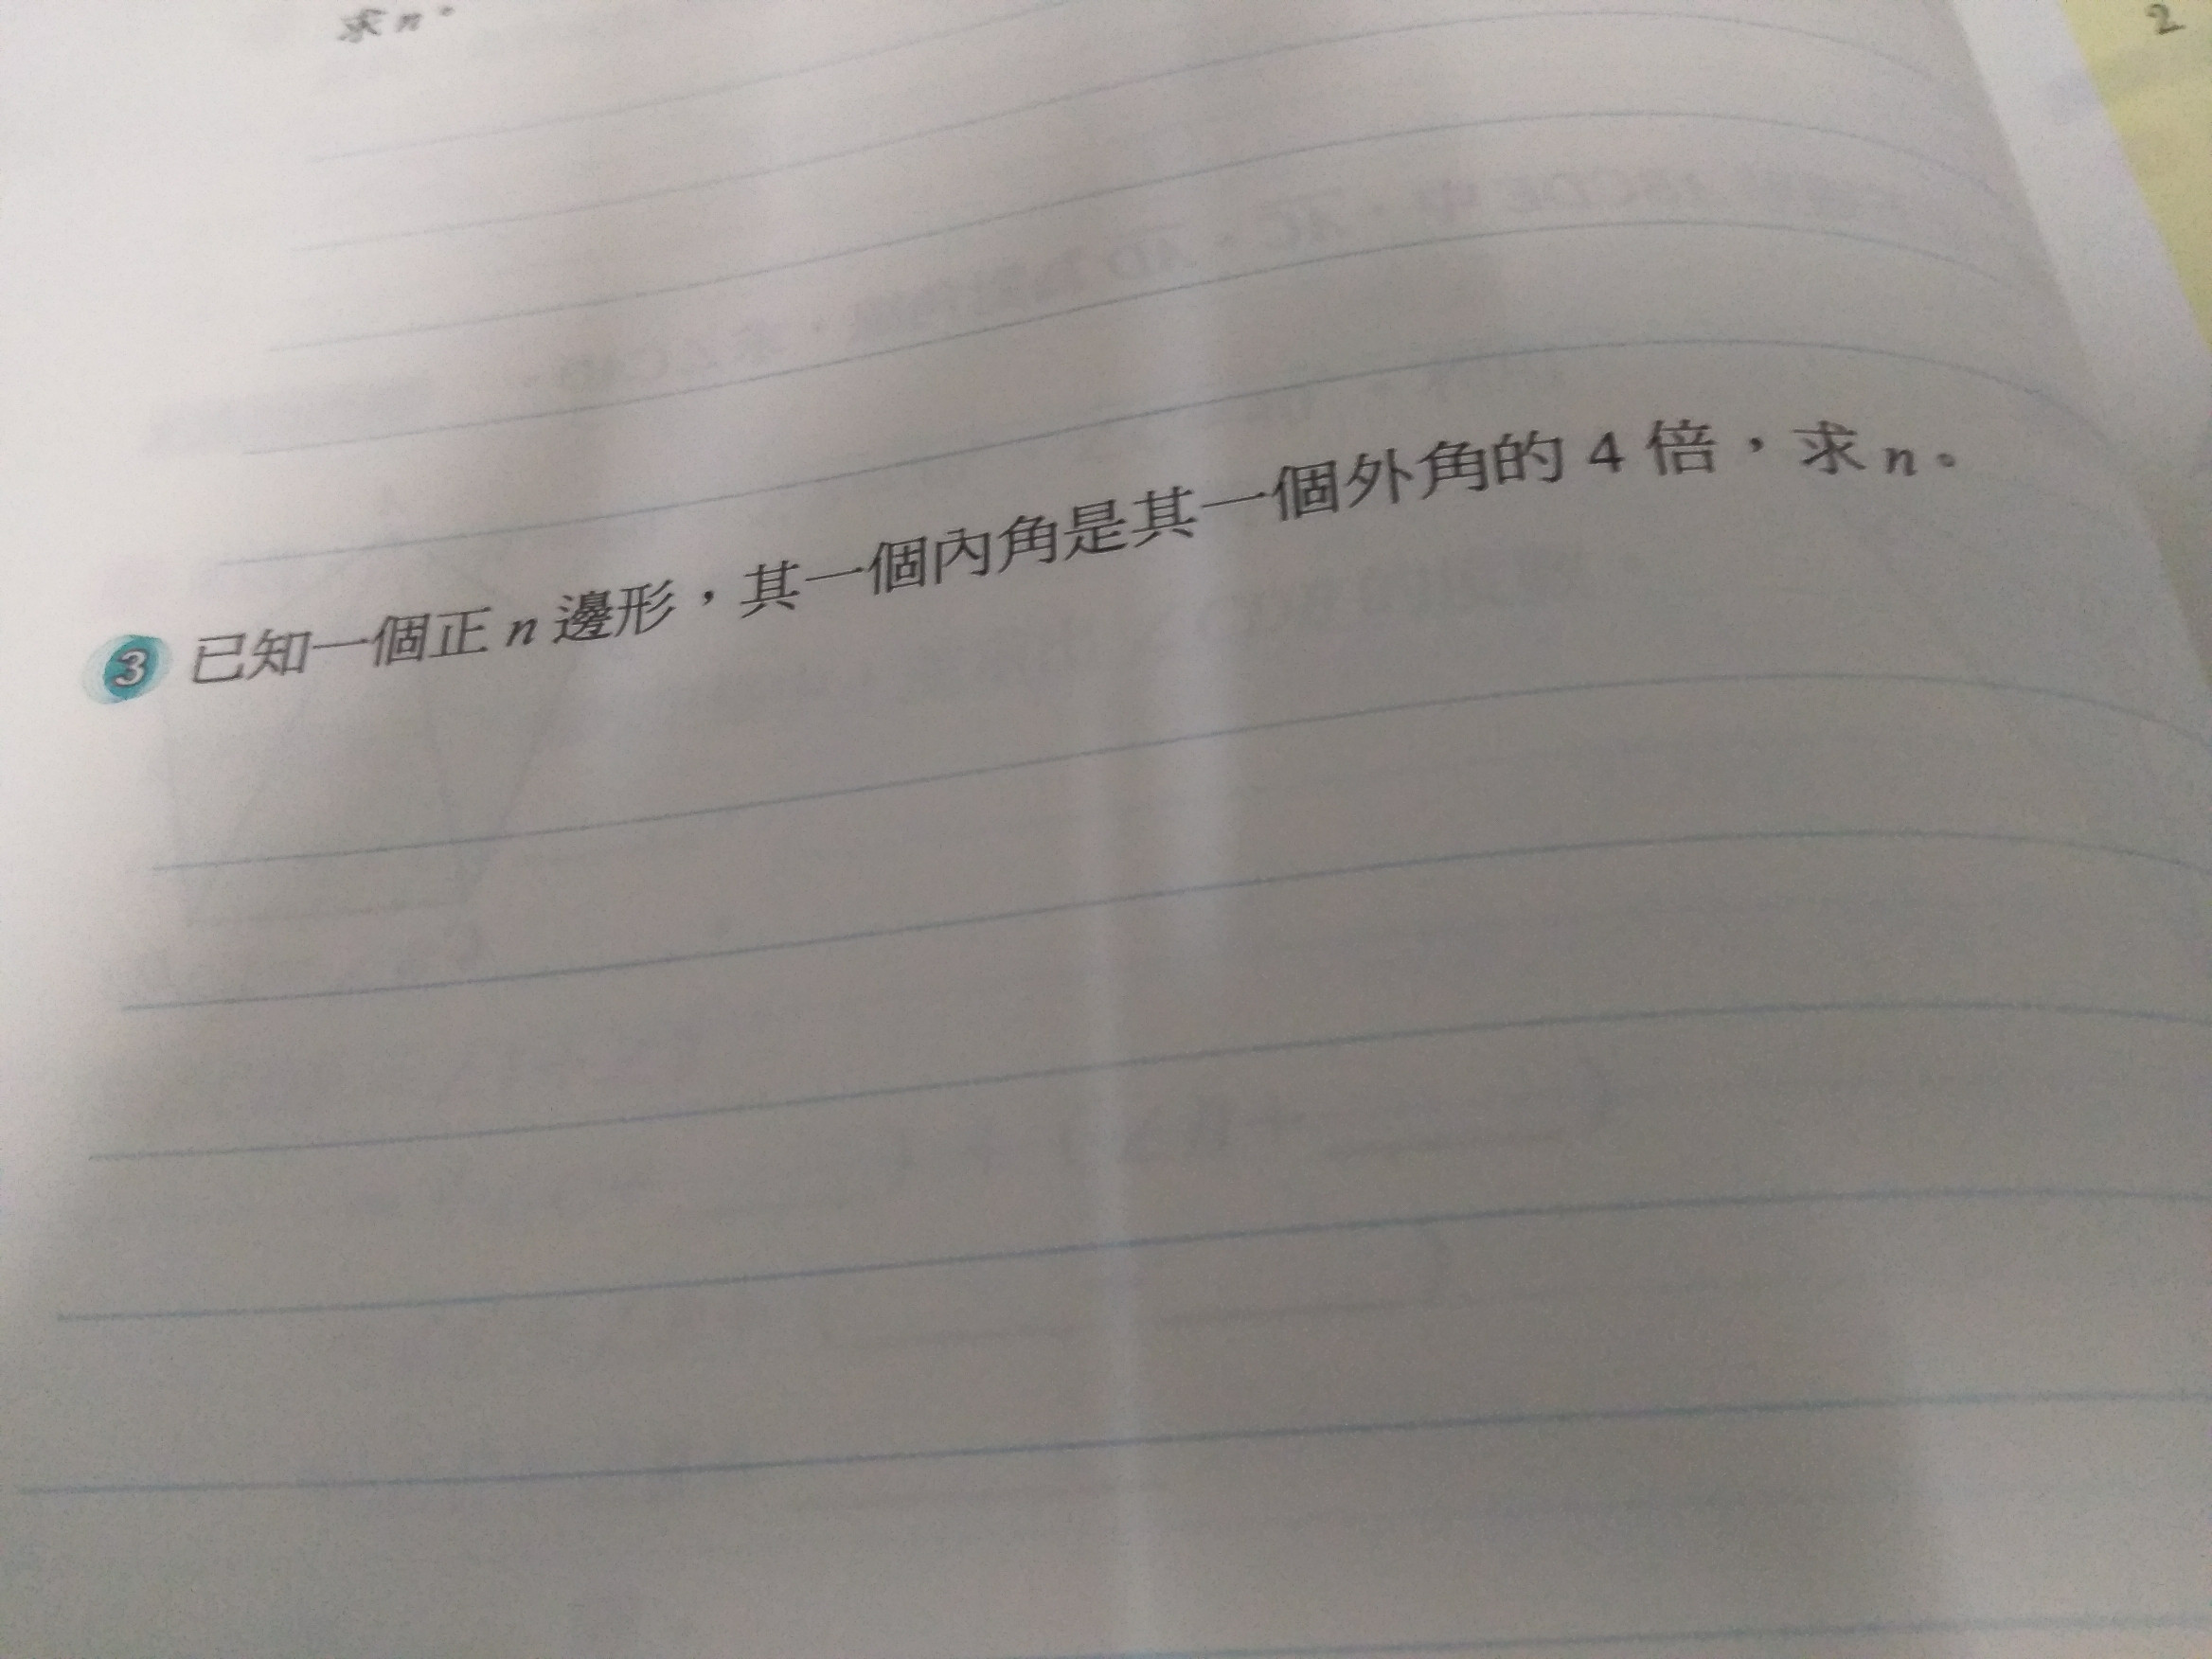 求 n。
2
3 已知一個正 n 邊形，其一個內角是其一個外角的 4 倍，求 n。